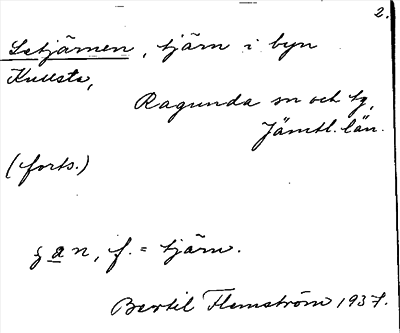 2.
Setjärnen, tjärn i byn
Kullsta,
Ragunda sn och tg,
Jämtl. län.
(forts.)
f. = tjärn.
Bertil Flemström 1937.